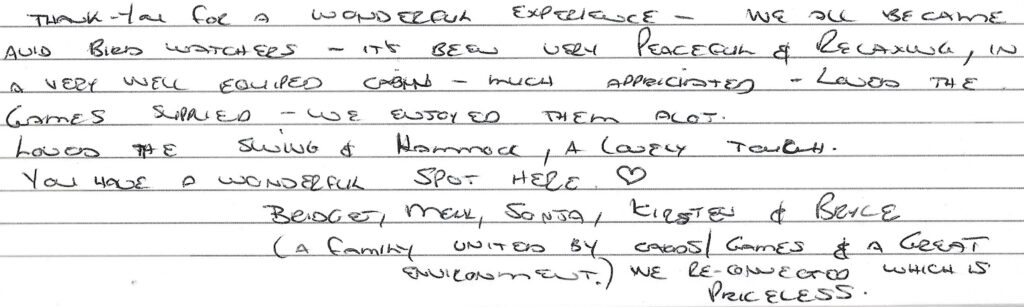 THANK-YOU FOR A WONDERFUL EXPERIENCE - WE ALL BECAME
AVID BIRD WATCHERS - IT'S BEEN VERY PEACEFUL & RELAXING, IN
A VERY WELL EQUIPED CABIN - MUCH APPRICIATED - LOVED THE
GAMES SUPPLIED - WE ENJOYED THEM ALOT.
LOVED THE SWING & HAMMOCK, A LOVELY TOUCH.
YOU HAVE A WONDERFUL SPOT HERE ♡
BRIDGET, MELL, SONJA, KIRSTEN & BRYCE
(A FAMILY UNITED BY CARDS/GAMES & A GREAT
ENVIRONMENT.) WE RE-CONNECTED WHICH IS
PRICELESS.